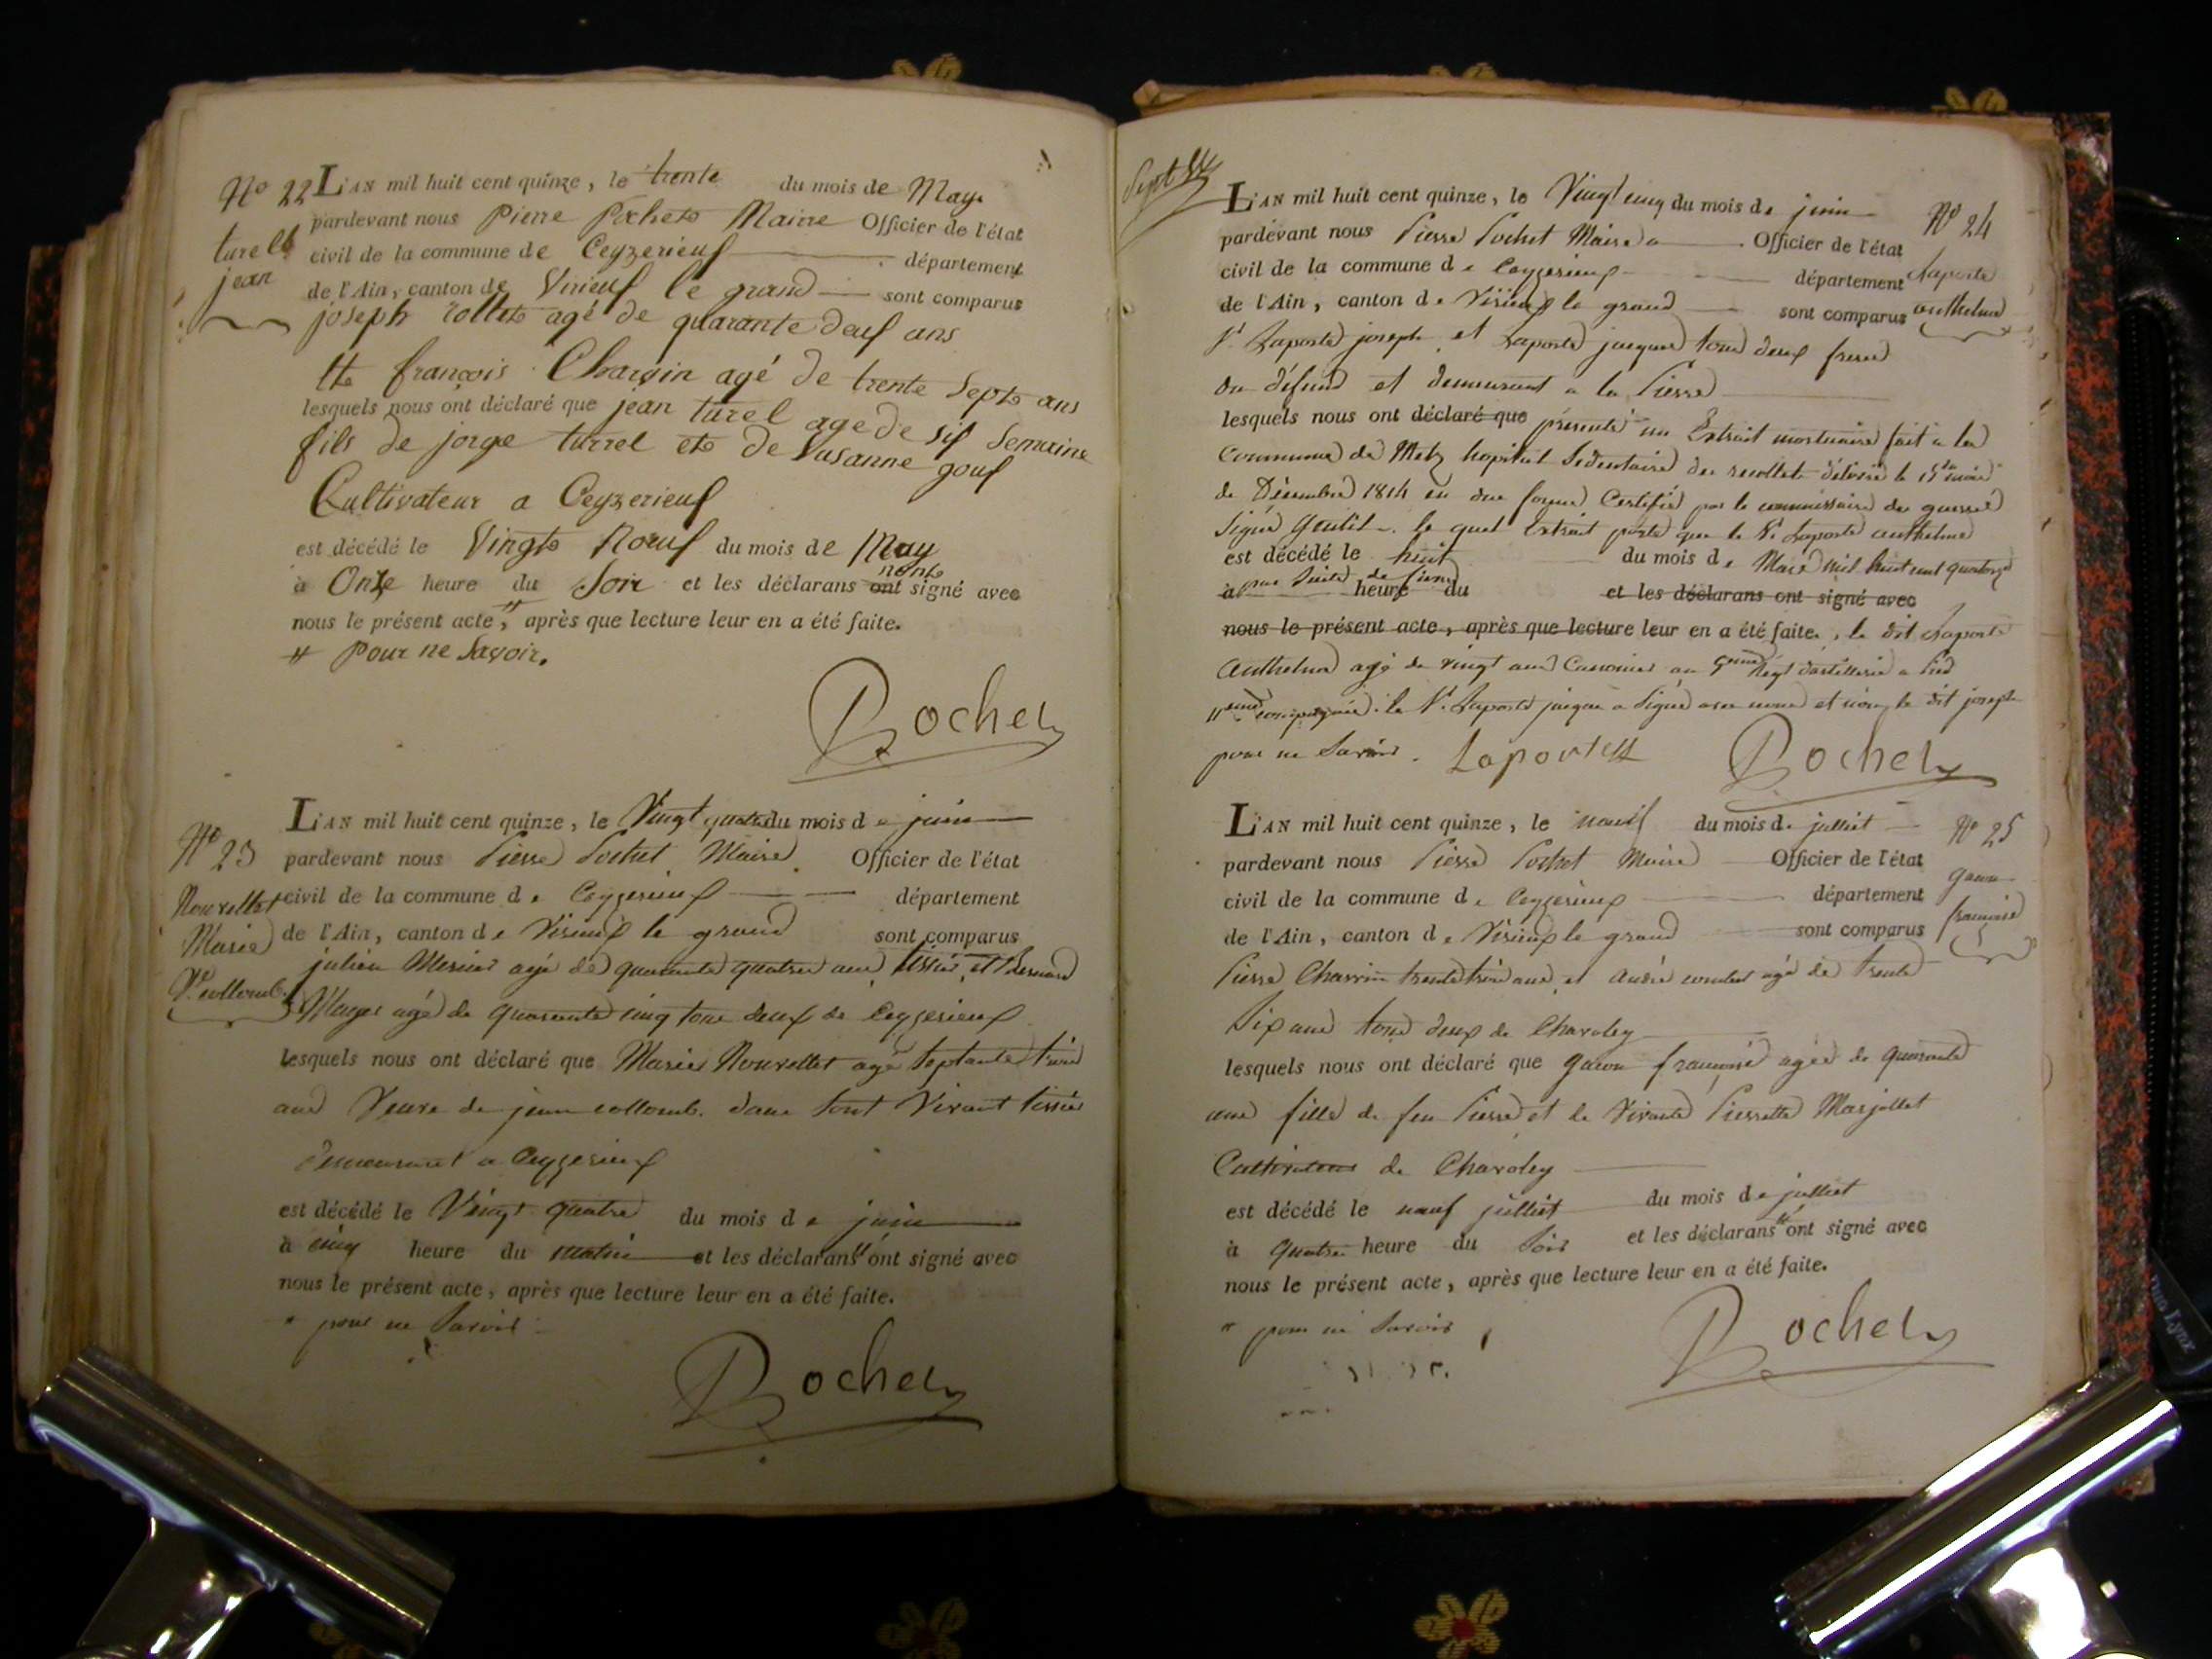 No 22
turel
jean
L'AN mil huit cent quinze, le trente du mois de May
pardevant nous Pierre Pochet Maire Officier de l'état
civil de la commune de Ceyzerieuf département
de l'Ain, canton de Virieuf le grand sont comparus
joseph rollet agé de quarante deuf ans
tte françois Charvin agé de trente Septe ans
lesquels nous ont déclaré que jean turel age de sif Semaine
fils de jorge turrel ete de Susanne gouf
Cultivateur a Ceyzerieuf
est décédé le Vingte Noeuf du mois de May
à Onze heure du Soir et les déclarans ont nonte signé avec
nous le présent acte, # après que lecture leur en a été faite.
# Pour ne Savoir.
Pochet
No 23
Nouvellet
Marie
Ve collomb
L'AN mil huit cent quinze, le Vingt quatre du mois de juin
pardevant nous Pierre Pochet Maire Officier de l'état
civil de la commune de Ceyzerieup département
de l'Ain, canton de Virieup le grand sont comparus
julien Mercier agé de quarante quatre ans tissier, et Bernard
agé de quarante cinq tous deux de Ceyzerieux
lesquels nous ont déclaré que Marie Nouvellet agé Septante trois
ans Veuve de jean collomb. dans Sont Vivant tissier
demeurant a Ceyzerieux
est décédé le Vingt quatre du mois de juin
à cinq heure du matin et les déclarans " ont signé avec
nous le présent acte, après que lecture leur en a été faite.
" pour ne Savoir
Pochet
Sept
No 24
Laporte
anthelme
L'AN mil huit cent quinze, le Vingt cinq du mois de juin
pardevant nous Pierre Pochet Maire Officier de l'état
civil de la commune de Ceyzerieup département
de l'Ain, canton de Virieup le grand sont comparus
Sr. Laporte joseph et Laporte jacques tous deux freres
du défunt et demeurant a la Pierre
lesquels nous ont déclaré que présenté un Extrait mortuaire fait a la
Commune de Metz hopital Sedentaire des recollets délivré le 15
de Décembre 1814 en due forme Certifié par le commissaire de guerre
Signé Gentil. le quel Extrait porte que le Sr. Laporte anthelme
est décédé le huit du mois de Mars mil huit cent quatorze
à par Suite de fievre heure du et les déclarans ont signé avec
nous le présent acte, après que lecture leur en a été faite., le dit Laporte
Anthelme agé de vingt ans Canonier au Regt d'artillerie a Pied
compagnie. le Sr. Laporte jacques a Signé avec nous et non le dit joseph
pour ne Savoir. Laporte Pochet
No 25
françoise
L'AN mil huit cent quinze, le nauf du mois de julliet
pardevant nous Pierre Pochet Maire Officier de l'état
civil de la commune de Ceyzerieup département
de l'Ain, canton de Virieup le grand sont comparus
Pierre Charvin trente trois ans, et André agé de trente
Sip ans tous deux de Charoley
lesquels nous ont déclaré que françoise agée de quarante
ans fille de feu Pierre et de Vivante Pierrette Marjollet
Cultivateur de Charoley
est décédé le nauf julliet du mois de julliet
à quatre heure du Soir et les déclarans " ont signé avec
nous le présent acte, après que lecture leur en a été faite.
" pour ne Savoir
Pochet